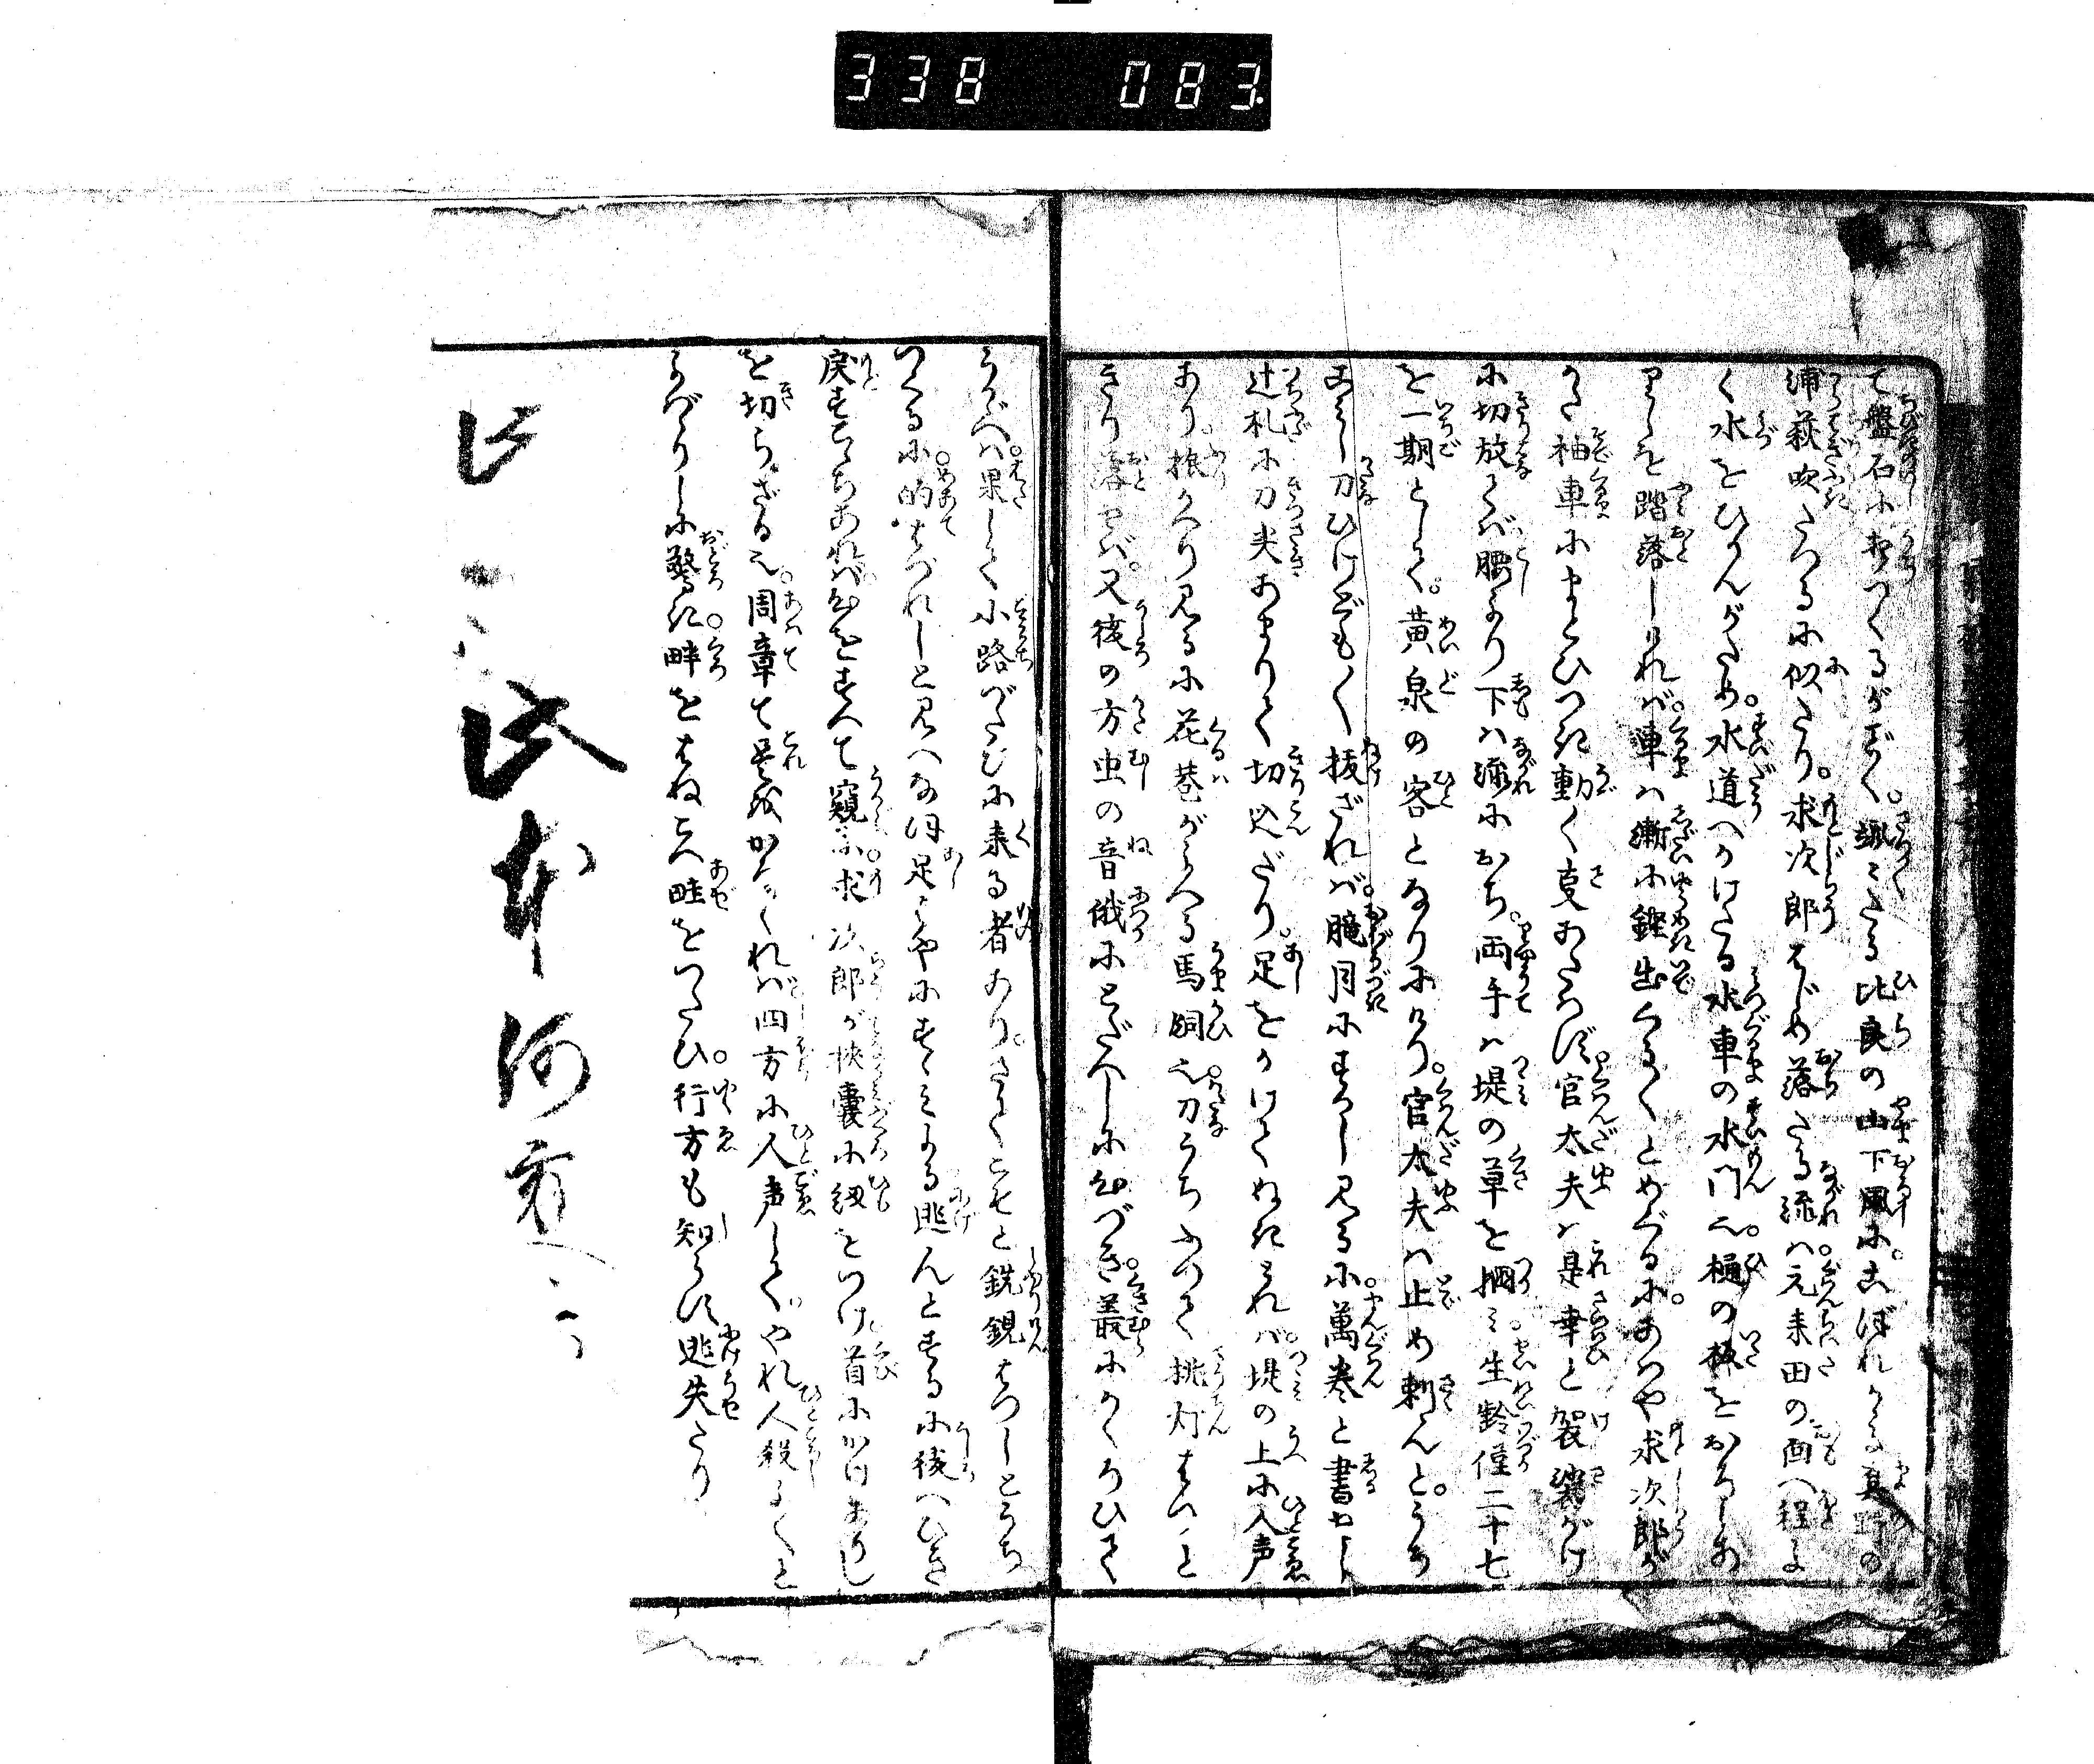 338 083
て盤石にむつくるがごとく。颯々たる比良の山下風に。こぼれかゝる真野の
浦萩吹たつるに似たり。求次郎はじめ落たる流ハ元来田の面へ程よ
く水をひかんがため。水道へかけたる水車の水門也。樋の板をおろしあ
りしを踏落しけれバ。車ハ漸に鏗出くるくとめぐるにあハや求次郎が
かた袖車にまとひつき動く事あたはず官太夫ハ是幸と袈裟がけ
に切放せバ腰より下ハ流におち。両手ハ堤の草を掴ミ生齢僅二十七
を一期として。黄泉の客となりにけり。官太夫ハ止め刺んと。とりお
こし刀ひけども〱抜ざれバ。朧月にすかし見るに。萬巻と書おこし
辻札に刀尖あまりて切込だり。足をかけてぬきとれバ。堤の上に人声
あり。振かへり見るに花巷がよへる馬飼也刀うちふつて挑灯はつしと
きり落せバ。又後の方虫の音俄にとだへしに心づき。叢にかくろひて
うかゞへバ。果して小路づたひに来る者あり。さてこそと銑鋧はつしとうち
つくるに。的はづれしと見へなほ足はやにすゝみよる逃んとするに後へひき
戻すものあれバ心をすへて窺ふに求次郎が挟嚢に紐をつけ。首にかけありし
を切らざる也。周章て是をかなくれバ四方に人声して。やれ人殺よ〱と
よバゝりしに驚き。畔をはねこへ畦をつたひ。行方も知らず逃失たり
此本河